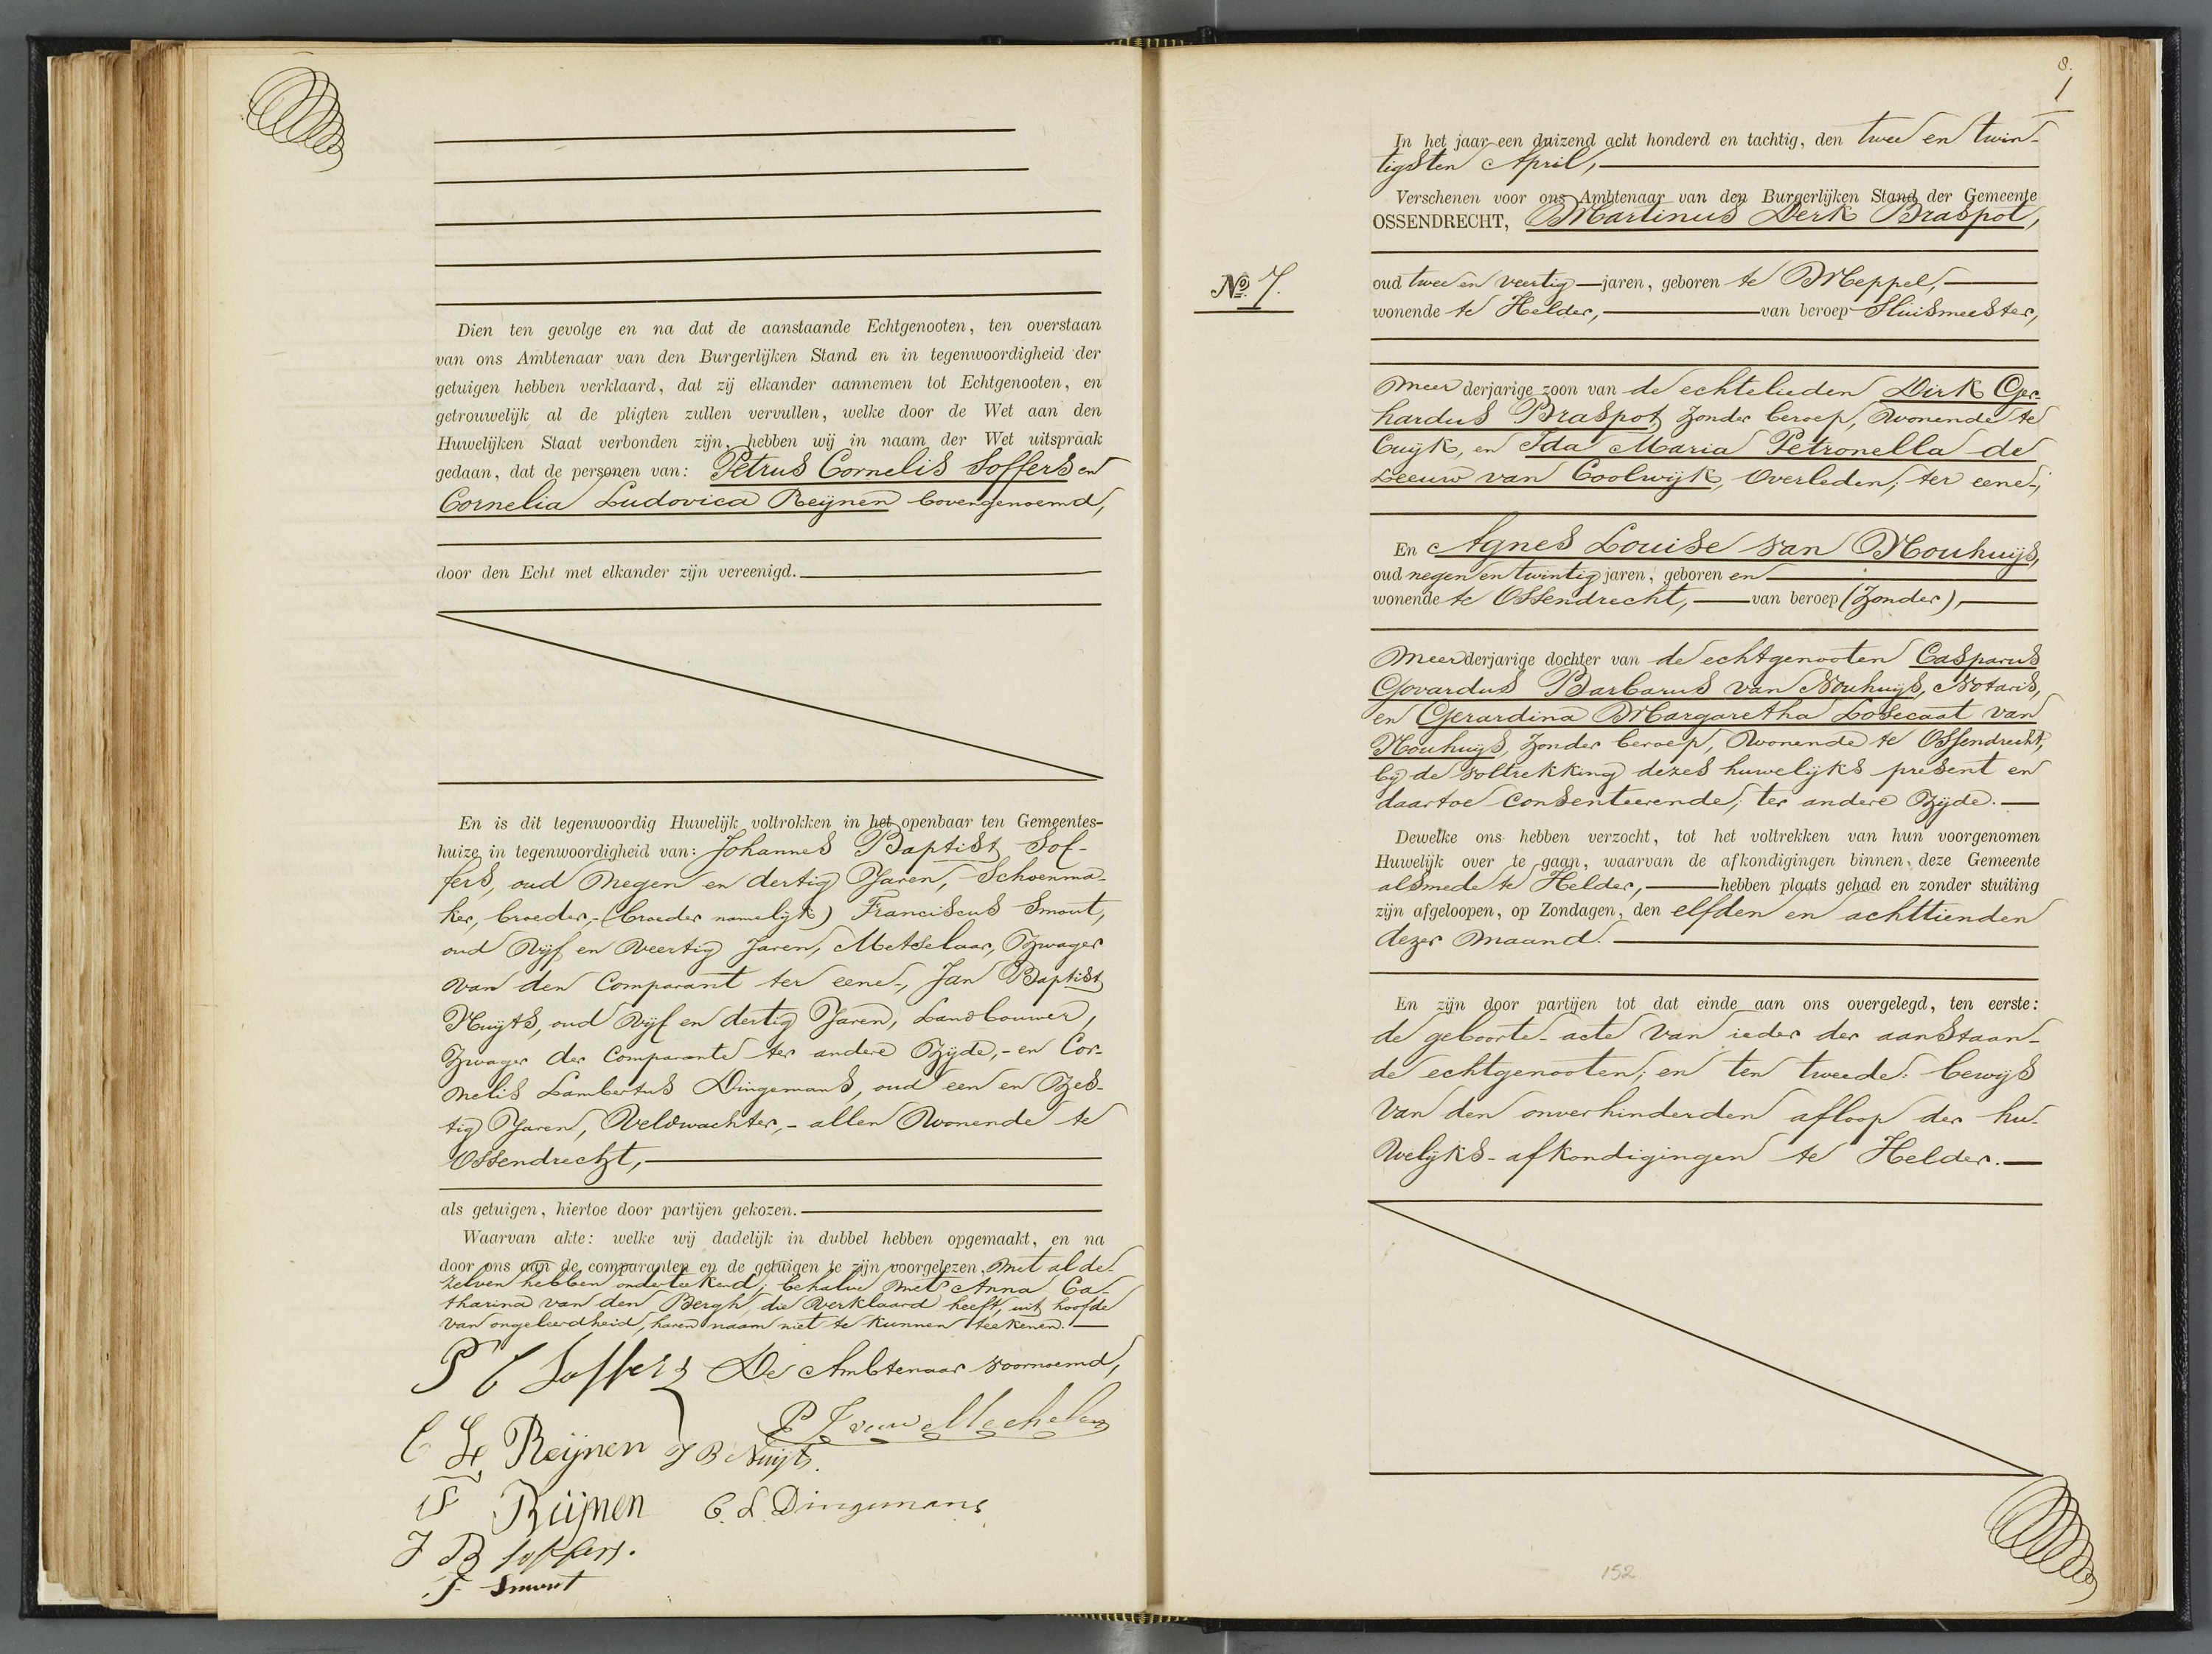 Dien ten gevolge en na dat de aanstaande Echtgenooten, ten overstaan
van ons Ambtenaar van den Burgerlijken Stand en in tegenwoordigheid der
getuigen hebben verklaard, dat zij elkander aannemen tot Echtgenooten, en
getrouwelijk al de pligten zullen vervullen, welke door de Wet aan den
Huwelijken Staat verbonden zijn, hebben wij in naam der Wet uitspraak
gedaan, dat de personen van: Petrus Cornelis Soffers en
Cornelia Ludovica Reijnen bovengenoemd,
door den Echt met elkander zijn vereenigd.
En is dit tegenwoordig Huwelijk voltrokken in het openbaar ten Gemeentes-
huize in tegenwoordigheid van: Johannes Baptist Sof-
fers, oud negen en dertig Jaren, Schoenma-
ker, broeder,- (broeder namelijk) Franciscus Smout,
oud vijf en veertig Jaren, Metselaar, Zwager
van den Comparant ter eene-, Jan Baptist
Nuijts, oud vijf en dertig Jaren, Landbouwer,
Zwager der Comparante ter andere Zijde,- en Cor-
nelis Lambertus Dingemans, oud een en Zes-
tig Jaren, Veldwachter,- allen wonende te
Ossendrecht,
als getuigen, hiertoe door partijen gekozen.
Waarvan akte: welke wij dadelijk in dubbel hebben opgemaakt, en na
door ons aan de comparanten en de getuigen te zijn voorgelezen, met al de-
zelven hebben onderteekend; behalve met Anna Ca-
tharina van den Bergh, die verklaard heeft, uit hoofde
van ongeleerdheid, haren naam niet te kunnen teekenen.
P C Soffers De Ambtenaar voornoemd,
P J van Mechelen
C L Reijnen J B Nuijts.
Reijnen C. L. Dingemans
J B Soffers.
F Smout
8.
1
In het jaar een duizend acht honderd en tachtig, den twee en twin-
tigsten April,
Verschenen voor ons Ambtenaar van den Burgerlijken Stand der Gemeente
OSSENDRECHT, Martinus Derk Braspot,
No. 7.
oud twee en veertig jaren, geboren te Meppel,
wonende te Helder, van beroep Sluismeester,
meerderjarige zoon van de echtelieden Dirk Ger-
hardus Braspot, zonder beroep, wonende te
Cuijk, en Ida Maria Petronella de
Leeuw van Coolwijk, overleden; ter eene-,
En Agnes Louise van Nouhuijs,
oud negen en twintig jaren, geboren en
wonende te Ossendrecht, van beroep (zonder),
meerderjarige dochter van de echtgenooten Casparus
Govardus Barbarus van Nouhuijs, Notaris,
en Gerardina Margaretha Losecaat van
Nouhuijs, zonder beroep, wonende te Ossendrecht,
bij de voltrekking dezes huwelijks present en
daartoe consenteerende; ter andere Zijde.
Dewelke ons hebben verzocht, tot het voltrekken van hun voorgenomen
Huwelijk over te gaan, waarvan de afkondigingen binnen deze Gemeente
alsmede te Helder, hebben plaats gehad en zonder stuiting
zijn afgeloopen, op Zondagen, den elfden en achttienden
dezer maand.
En zijn door partijen tot dat einde aan ons overgelegd, ten eerste:
de geboorte-acte van ieder der aanstaan-
de echtgenooten; en ten tweede: bewijs
van den onverhinderden afloop der hu-
welijks-afkondigingen te Helder.
152